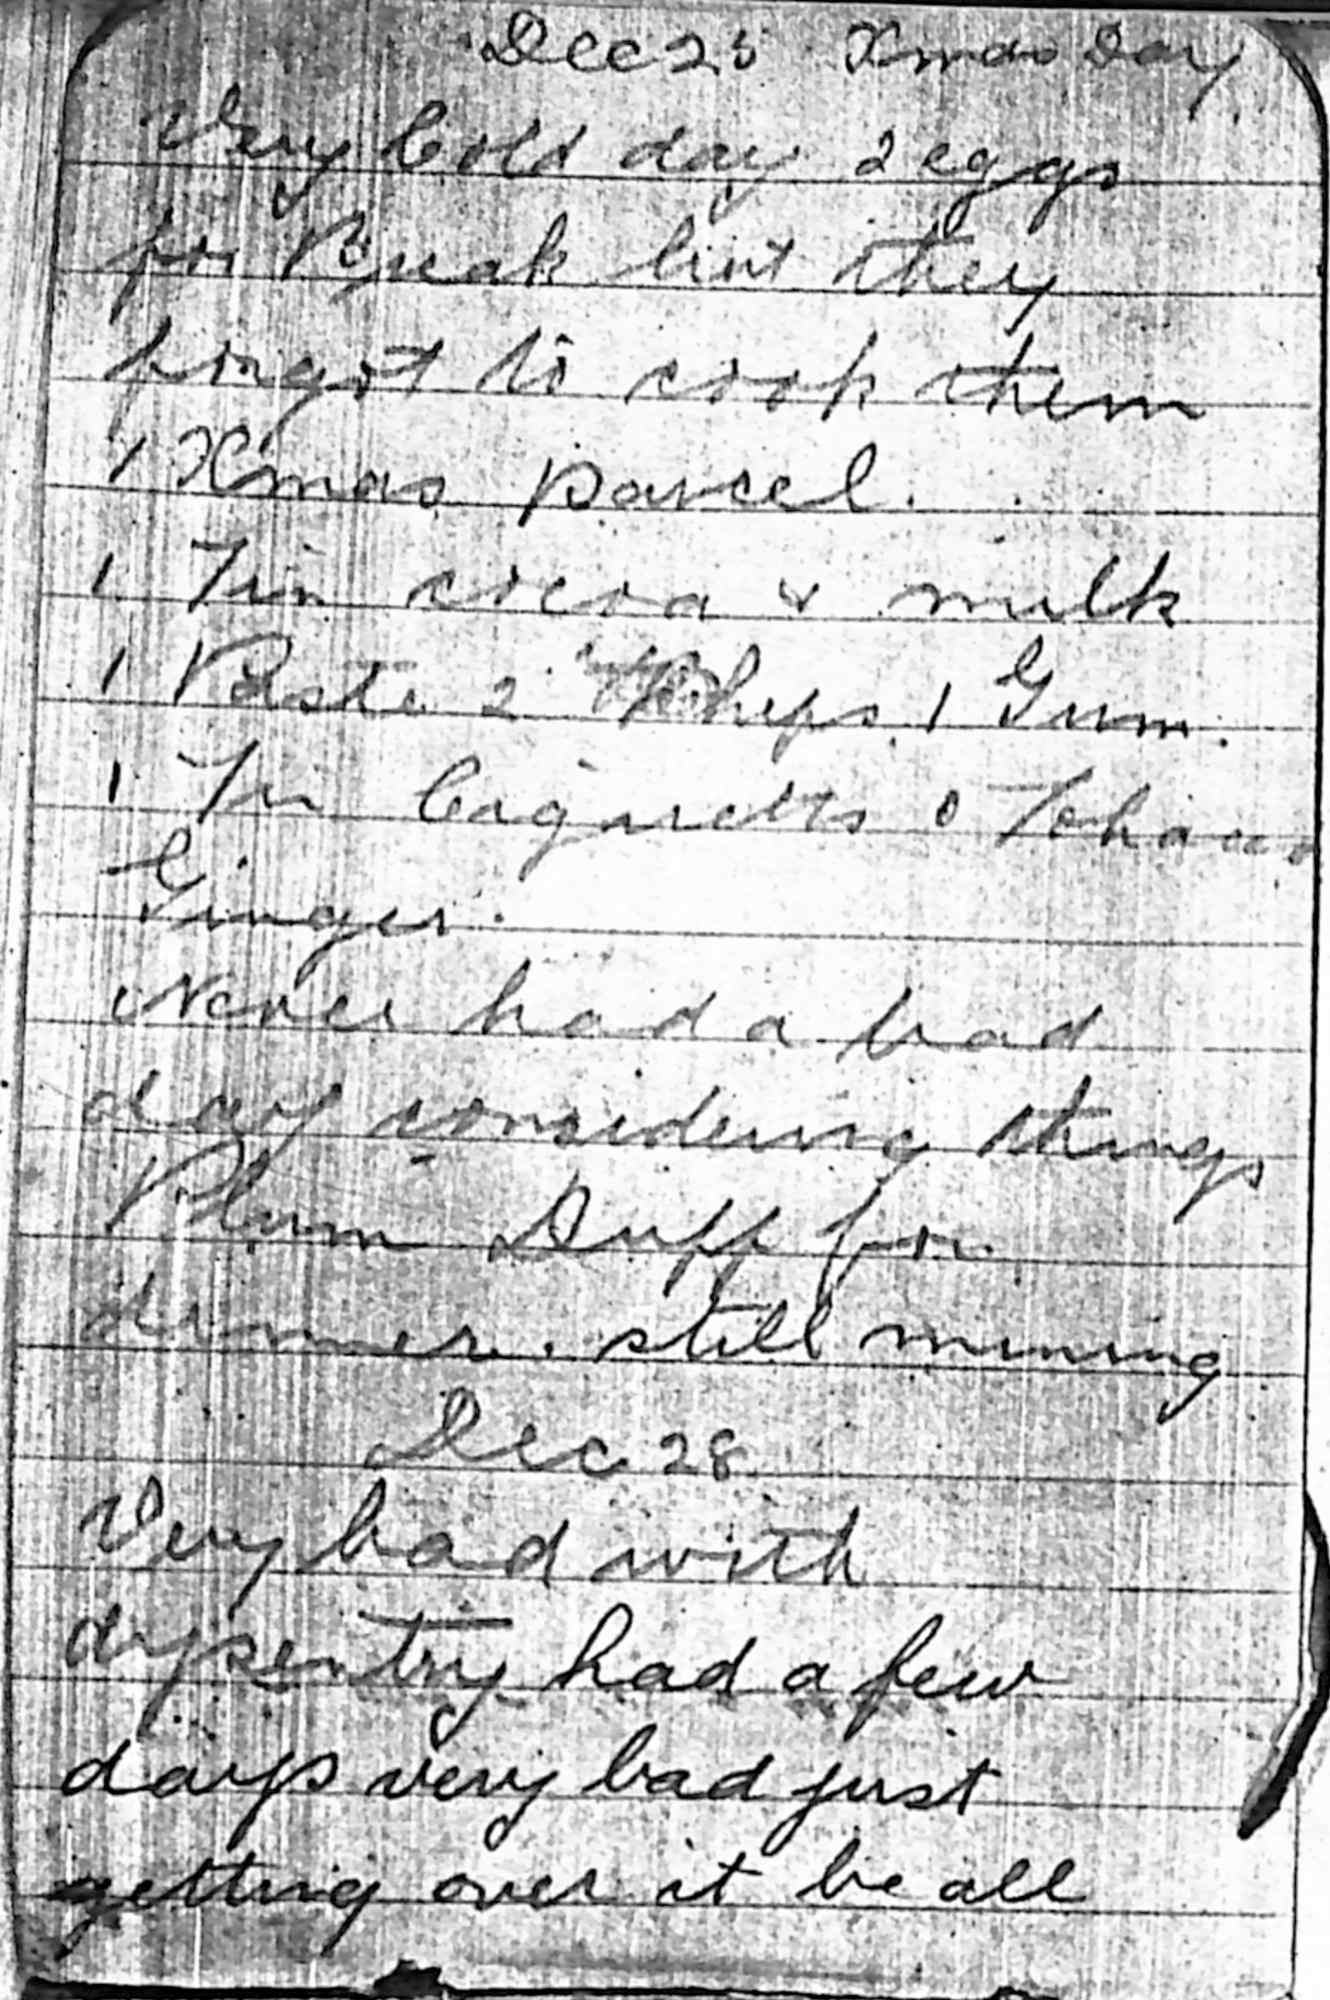 Dec 25 Xmas Day
Very Cold day 2 eggs
for Break but they
forgot to cook them
1 Xmas parcel.
1 Tin cocoa & milk
1 Paste 2 1 Gum.
1 Tin Cigaretts Tobacco
Ginger.
Never had a bad
day considering things
Plum Duff for
dinner. still mining
Dec 28
Very bad with
dysentry had a few
days very bad just
getting over it be all